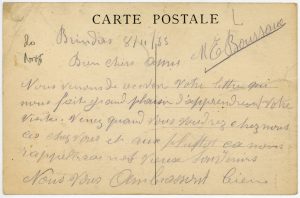 CARTE POSTALE
Brindas 8/11/35
Bien chers amis Mr E Boussoux
Nous venons de recevoir votre lettre qui
nous fait grand plaisir d'apprendre votre
visite. Venez quand vous voudrez chez nous
ces chez vous et au plustot ca nous
rappelera vieux souvenirs
Nous vous Ambrassons bien